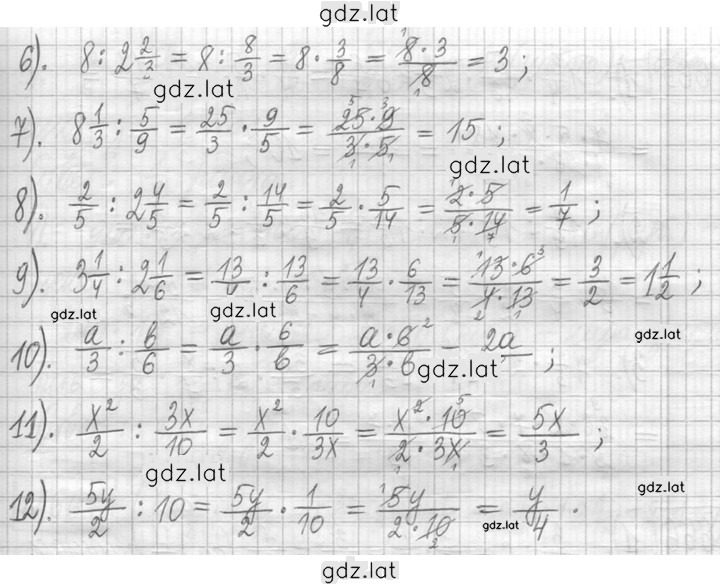 gdz.lat
6). 8 : 2 2/3 = 8 : 8/3 = 8 · 3/8 = 8·3/8 = 3 ;
gdz.lat
7). 8 1/3 : 5/9 = 25/3 · 9/5 = 25·9/3·5 = 15 ;
gdz.lat
8). 2/5 : 2 4/5 = 2/5 : 14/5 = 2/5 · 5/14 = 2·5/5·14 = 1/7 ;
9). 3 1/4 : 2 1/6 = 13/4 : 13/6 = 13/4 · 6/13 = 13·6/4·13 = 3/2 = 1 1/2 ;
gdz.lat gdz.lat
gdz.lat
10). a/3 : b/6 = a/3 · 6/b = a·6/3·b = 2a ;
gdz.lat
11). x²/2 : 3x/10 = x²/2 · 10/3x = x²·10/2·3x = 5x/3 ;
gdz.lat gdz.lat
12). 5y/2 : 10 = 5y/2 · 1/10 = 5y/2·10 = y/4 .
gdz.lat
gdz.lat